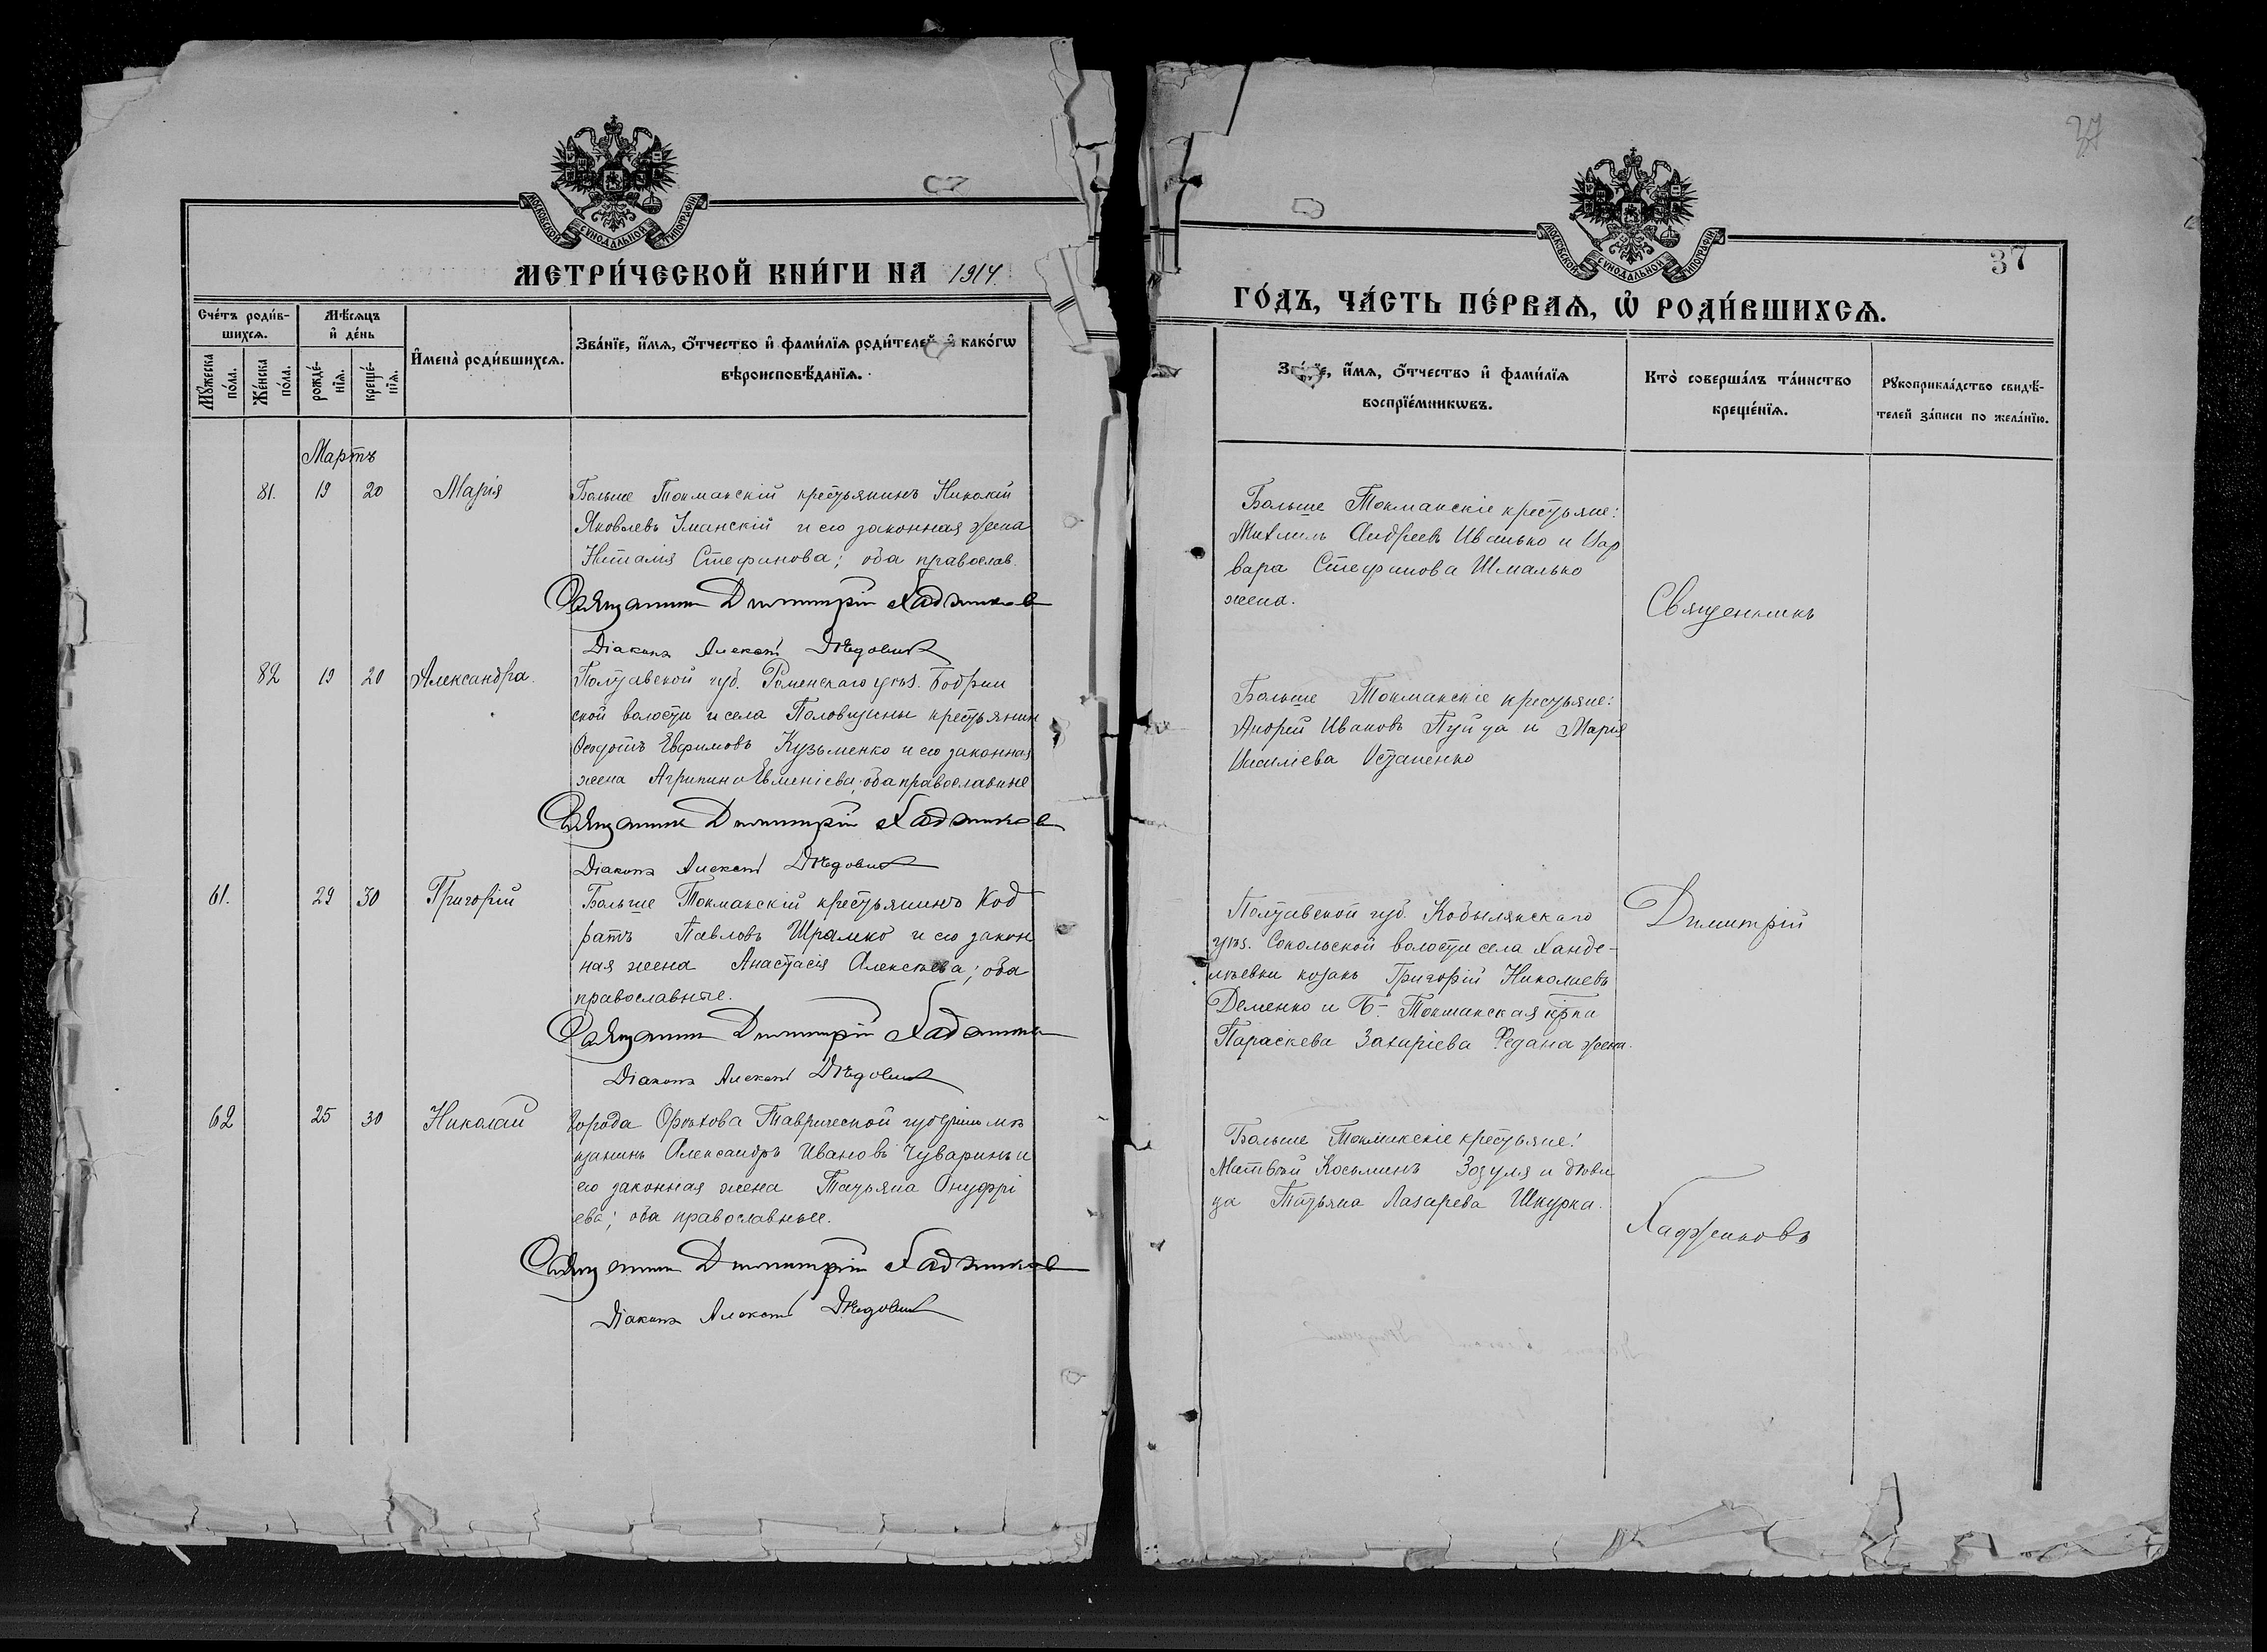 37
МОСКОВСКОЙ СѴНОДАЛЬНОЙ ТИПОГРАФІИ
МЕТРИ́ЧЕСКОЙ КНИ́ГИ НА 1914.
Сче́тъ роди́в-
шихсѧ.
Мѣ́сѧцъ
и҆ де́нь
Мꙋ́жеска
по́ла.
Же́нска
по́ла.
рожде́-
нїѧ.
креще́-
нїѧ.
И҆мена̀ роди́вшихсѧ.
Зва́нїе, и҆́мѧ, ѻ҆́тчество и҆ фами́лїѧ роди́телей и҆ како́гѡ
вѣроисповѣ́данїѧ.
Мартъ
81. 19 20 Марія
Больше Токмакскій крестьянинъ Николай
Яковлевъ Уманскій и его законная жена
Наталія Стефанова; оба православ.
Священникъ Димитрій Хаджиновъ
Діаконъ Алексѣй
82 19 20 Александра.
Полтавской губ. Роменскаго уѣз. Бобрик
ской волости и села Половщины крестьянин
Ѳеодотъ Евфимовъ Кузьменко и его законная
жена Агрипина Евменіева; оба православные
Священникъ Димитрій Хаджиновъ
Діаконъ Алексѣй
61. 29 30 Григорій
Больше Токмакскій крестьянинъ Код
ратъ Павловъ Шрамко и его закон
ная жена Анастасія Алексѣева; оба
православные.
Священникъ Димитрій Хаджиновъ
Діаконъ Алексѣй
62 25 30 Николай
Города Орѣхова Таврической губерніи мѣ
щанинъ Александръ Ивановъ Чуваринъ и
его законная жена Татьяна Онуфрі
ева; оба православные.
Священникъ Димитрій Хаджиновъ
Діаконъ Алексѣй
МОСКОВСКОЙ СѴНОДАЛЬНОЙ ТИПОГРАФІИ
37
ГО́ДЪ, ЧА́СТЬ ПЕ́РВАѦ, Ѡ҆ РОДИ́ВШИХСѦ.
Зва́нїе, и҆́мѧ, ѻ҆́тчество и҆ фами́лїѧ
воспрїе́мникѡвъ.
Кто̀ соверша́лъ та́инство
креще́нїѧ.
Рꙋкоприкла́дство свидѣ́-
телей за́писи по жела́нїю.
Больше Токмакскіе крестьяне:
Михаилъ Андреевъ Иванько и Вар
вара Стефанова Шмалько
жена.
Больше Токмакскіе крестьяне:
Андрей Ивановъ Пуйда и Марія
Василіева Остапенко
Полтавской губ. Кобылякскаго
уѣз. Сокольской волости села Ханде-
лѣевки козакъ Григорій Николаевъ
Деменко и Б.- Токмакская кр̅ка
Параскева Захаріева Федана жена.
Больше Токмакскіе крестьяне:
Матвѣй Косьминъ Зозуля и дѣви
ца Татьяна Лазарева Шкурка.
Священникъ
Димитрій
Хаджиновъ